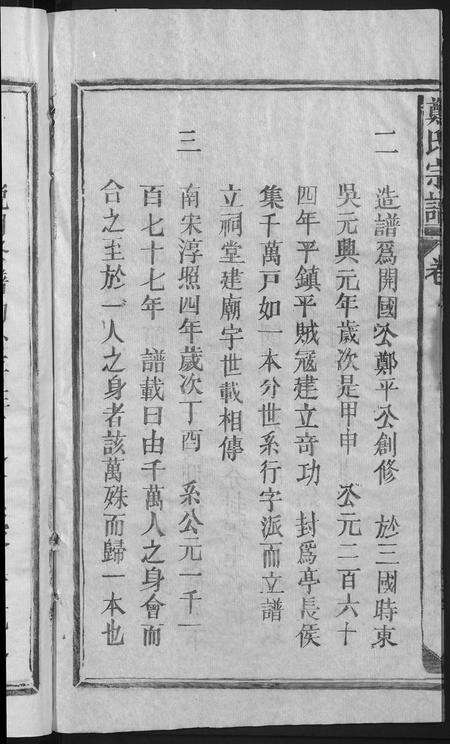 鄭氏宗譜 卷
二 造譜爲開國公鄭平公創修 於三國時東
吳元興元年歲次是甲申 公元二百六十
四年平鎮平賊寇建立奇功 封爲亭長侯
集千萬戸如一本分世系行字派而立譜
立祠堂建廟宇世載相傳
三 南宋淳照四年歲次丁酉 系公元一千一
百七十七年 譜載曰由千萬人之身會而
合之至於一人之身者該萬殊而歸一本也